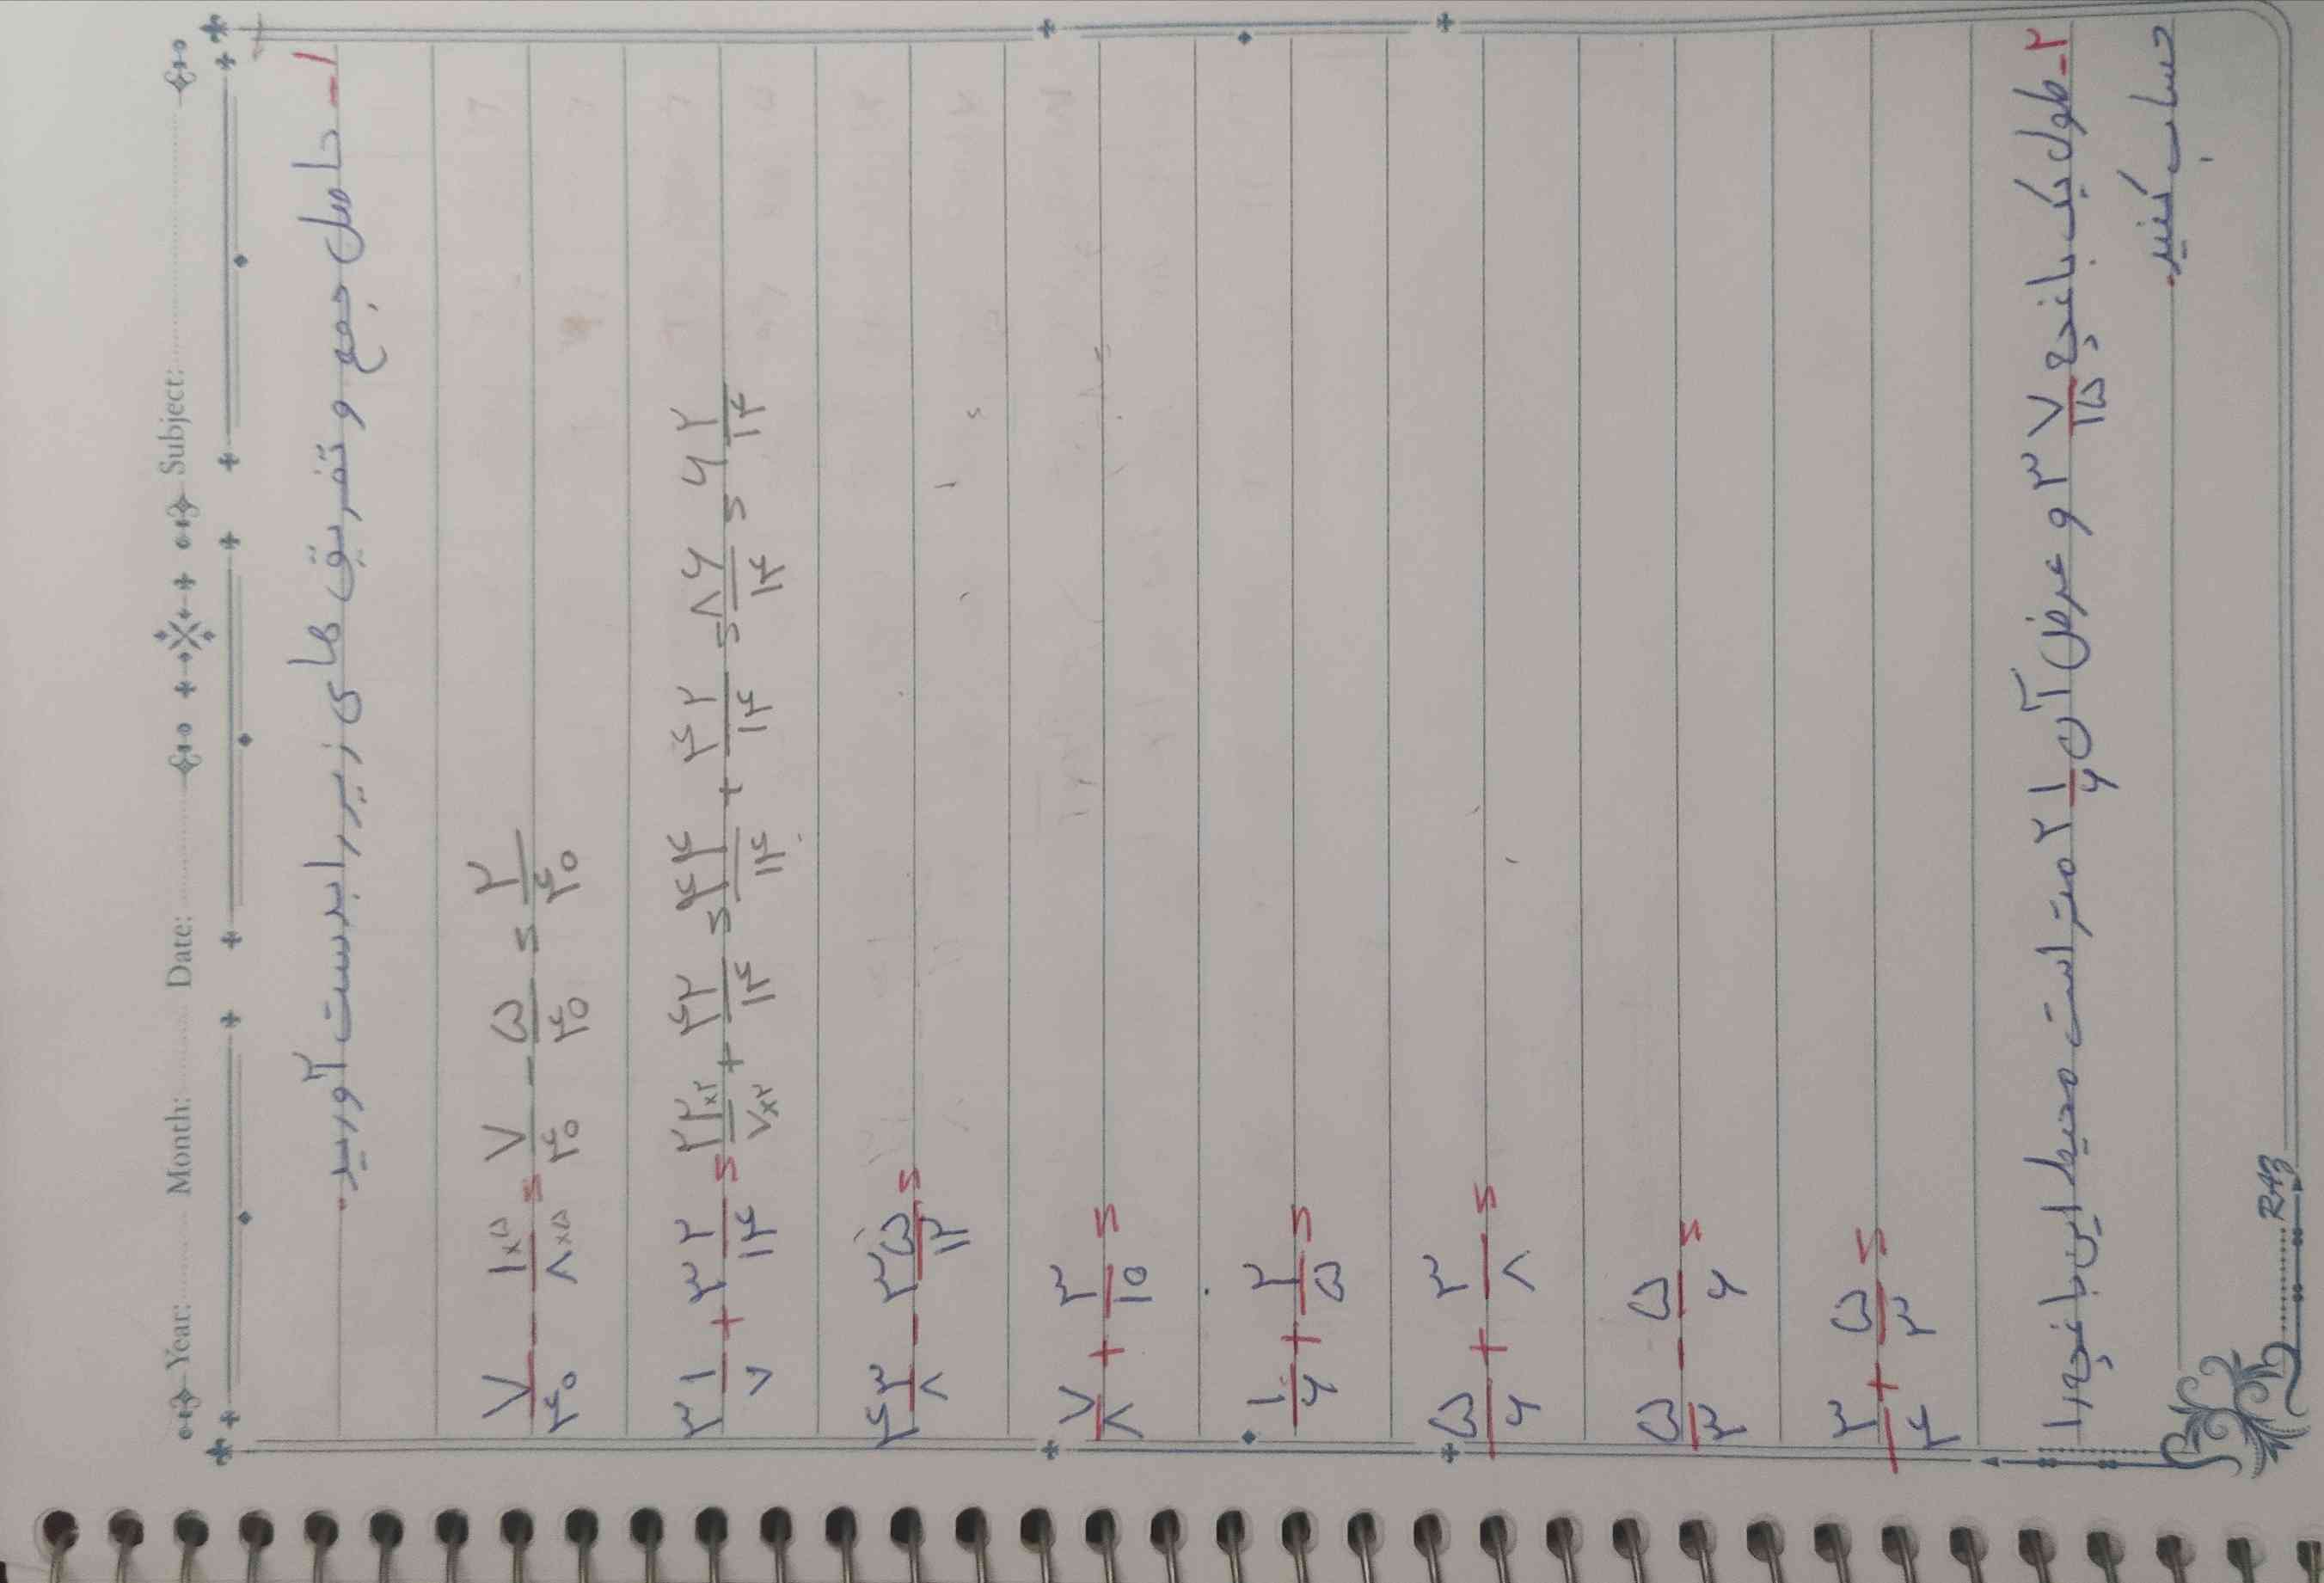 Year: Month: Date: Subject:
۱_ حاصل جمع و تفریق های زیر را بدست آورید.
۷/۴۰ - ۱×۵/۸×۵ = ۷/۴۰ - ۵/۴۰ = ۲/۴۰
۲ ۱/۷ + ۳ ۲/۱۴ =
۴ ۳/۸ - ۲ ۵/۱۲ =
۷/۸ + ۳/۱۰ =
۱/۶ + ۲/۵ =
۵/۶ + ۳/۸ =
۵/۳ - ۵/۶ =
۳/۴ + ۵/۳ =
۲_ طول یک باغچه ۳ ۷/۱۵ و عرض آن ۲ ۱/۶ متر است محیط این باغچه را
حساب کنید.